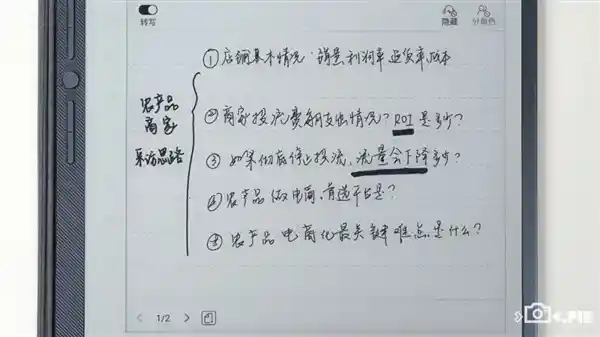 转写
隐藏
分角色
农产品
商家
采访思路
①店铺基本情况:销量、利润率 退货率 成本
②商家投流费用支出情况? ROI是多少?
③如果彻底停止投流,流量会下降多少?
④农产品做电商,首选平台是?
⑤农产品电商化最关键难点是什么?
1/2